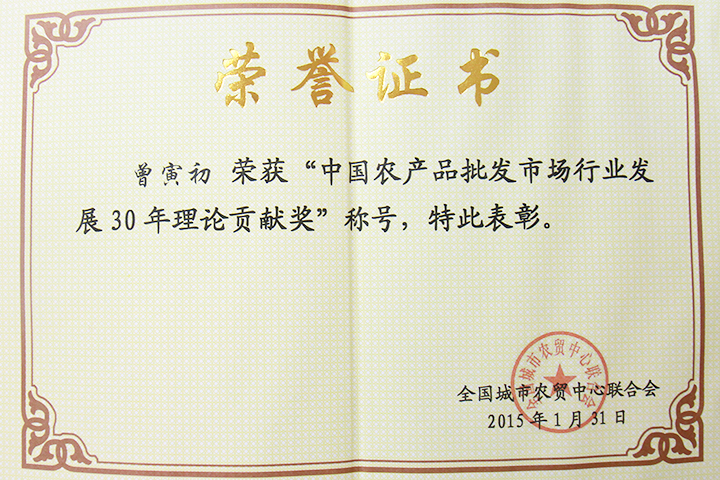 荣誉证书
曾寅初 荣获“中国农产品批发市场行业发
展30年理论贡献奖”称号，特此表彰。
全国城市农贸中心联合会
全国城市农贸中心联合会
2015年1月31日